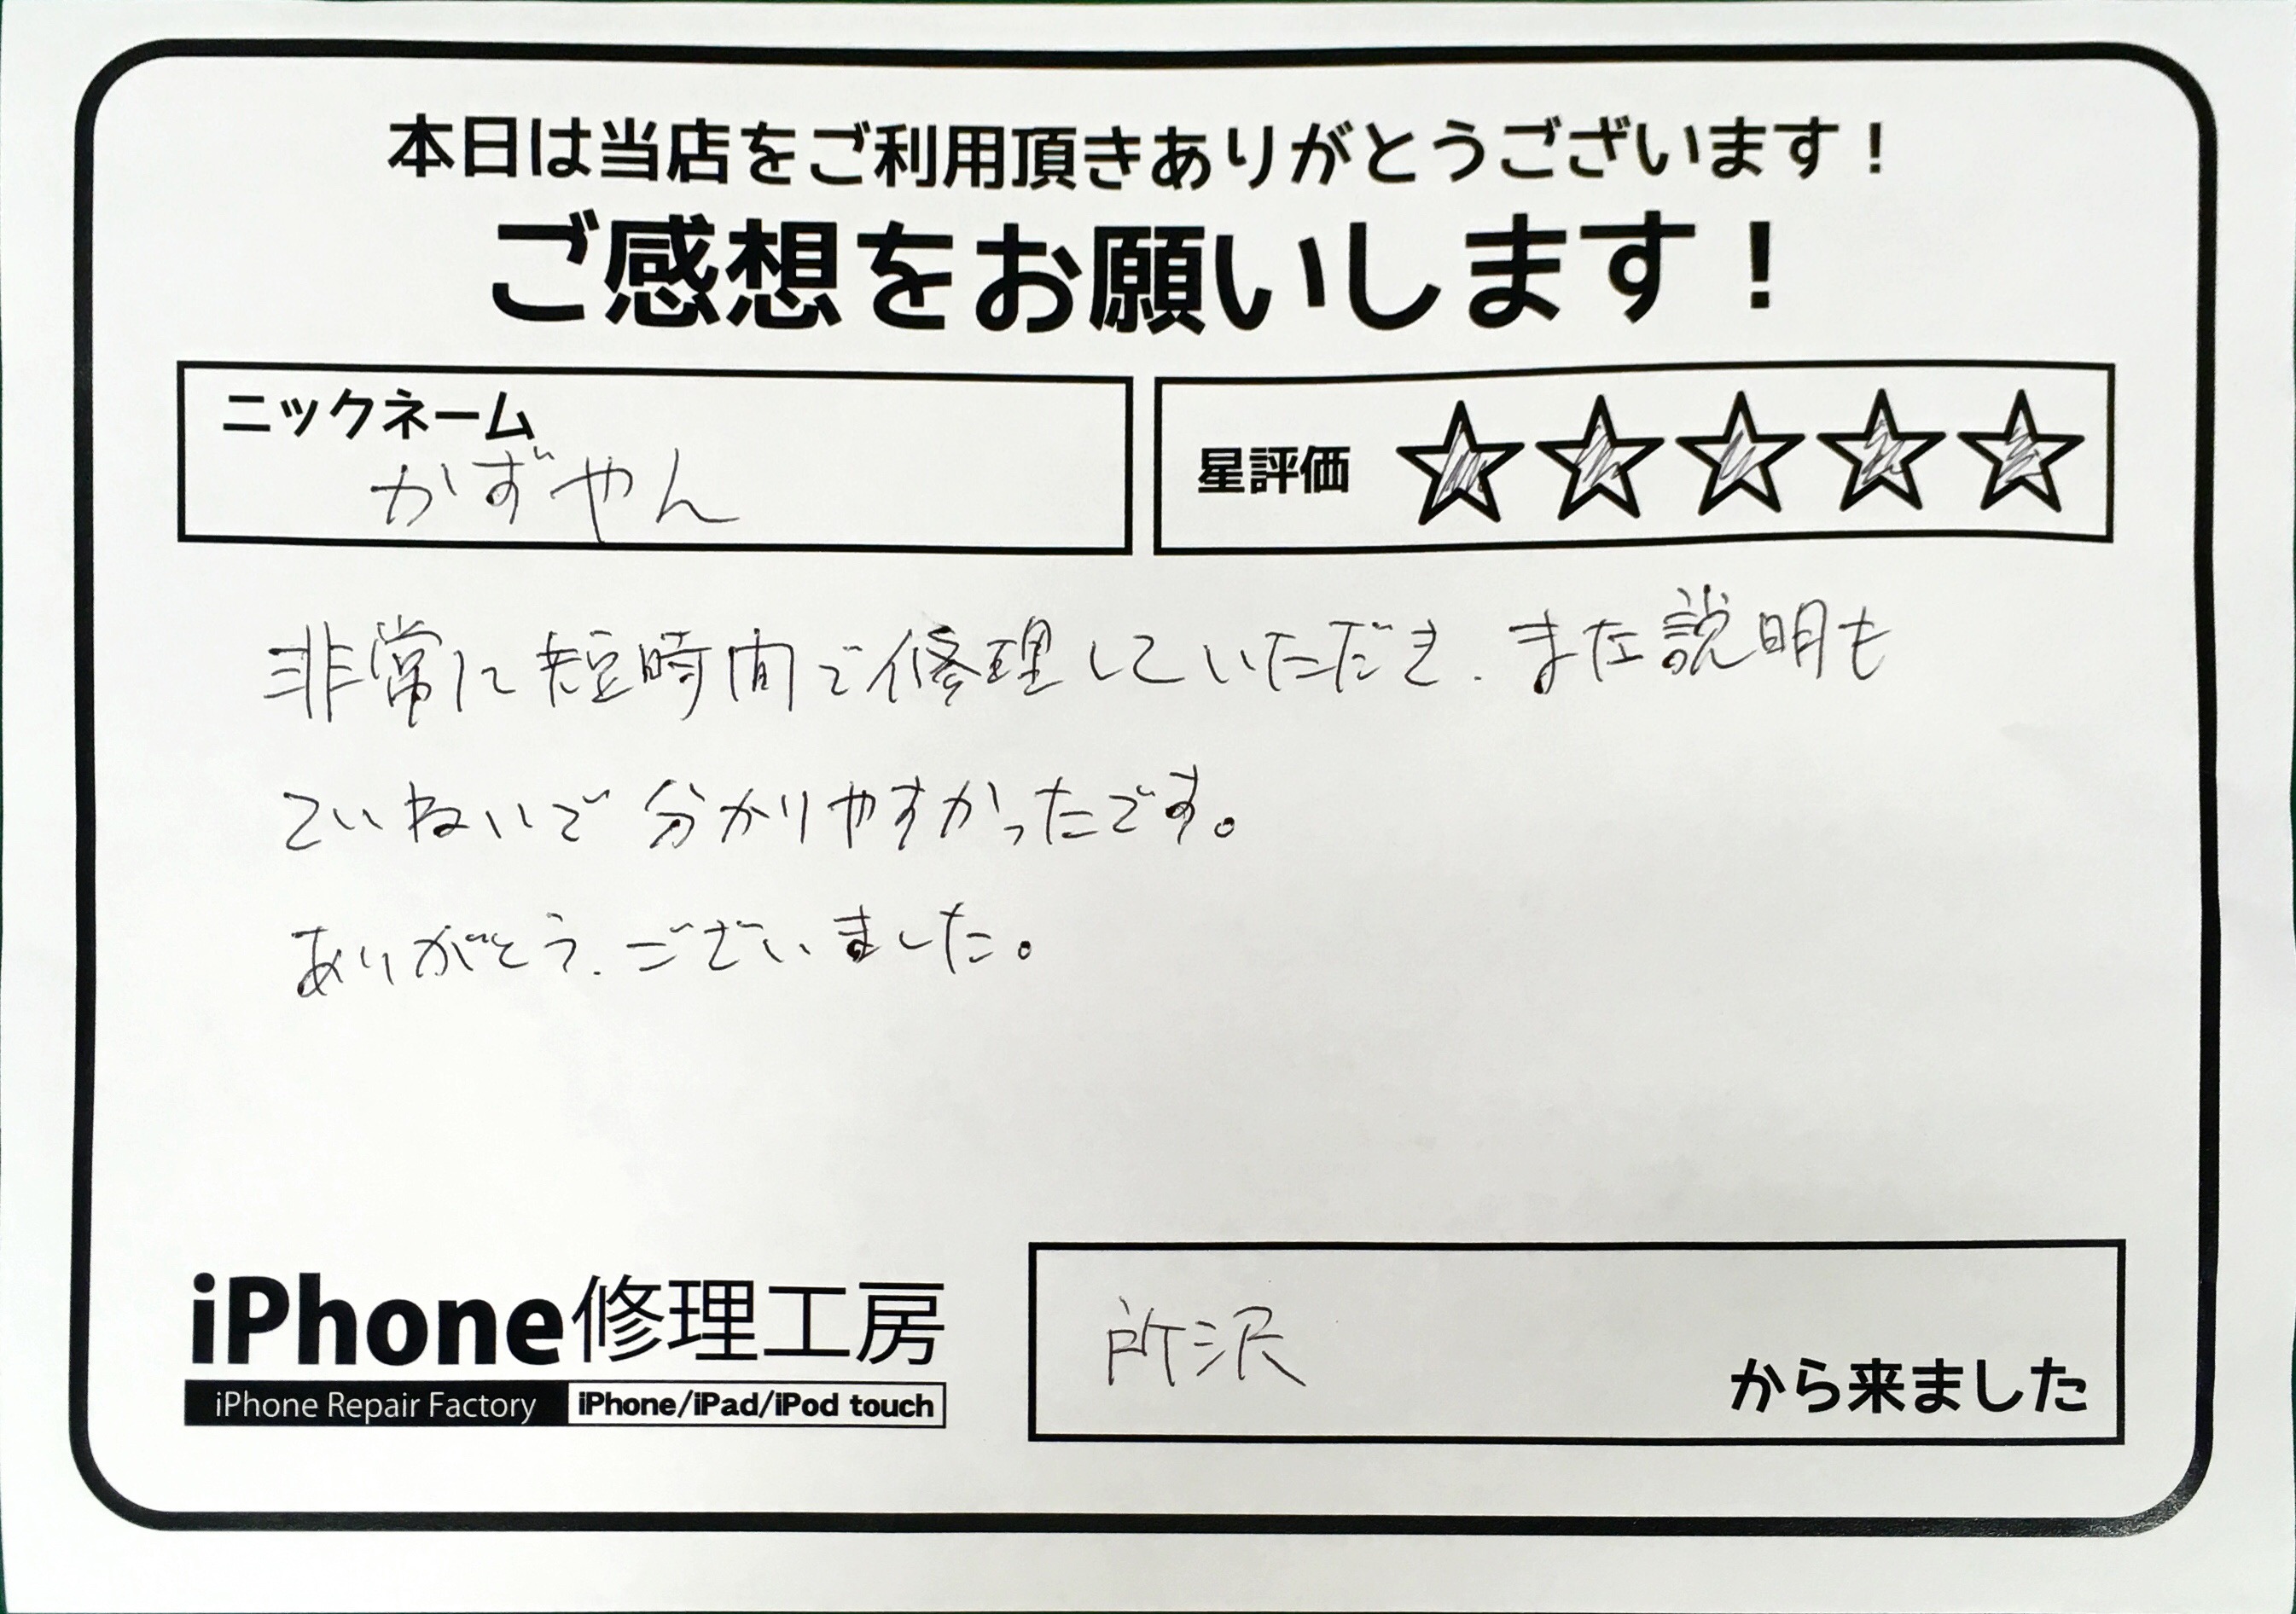 本日は当店をご利用頂きありがとうございます！
ご感想をお願いします！
ニックネーム
かずやん
星評価 ☆☆☆☆☆
非常に短時間で修理していただき、また説明も
ていねいで分かりやすかったです。
ありがとう、ございました。
iPhone修理工房
iPhone Repair Factory iPhone/iPad/iPod touch
所沢
から来ました